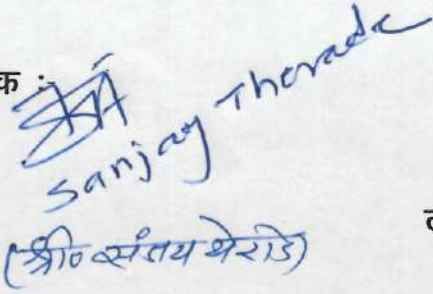 क :
Sanjay Thorade
(श्री० संजय थेराडे)